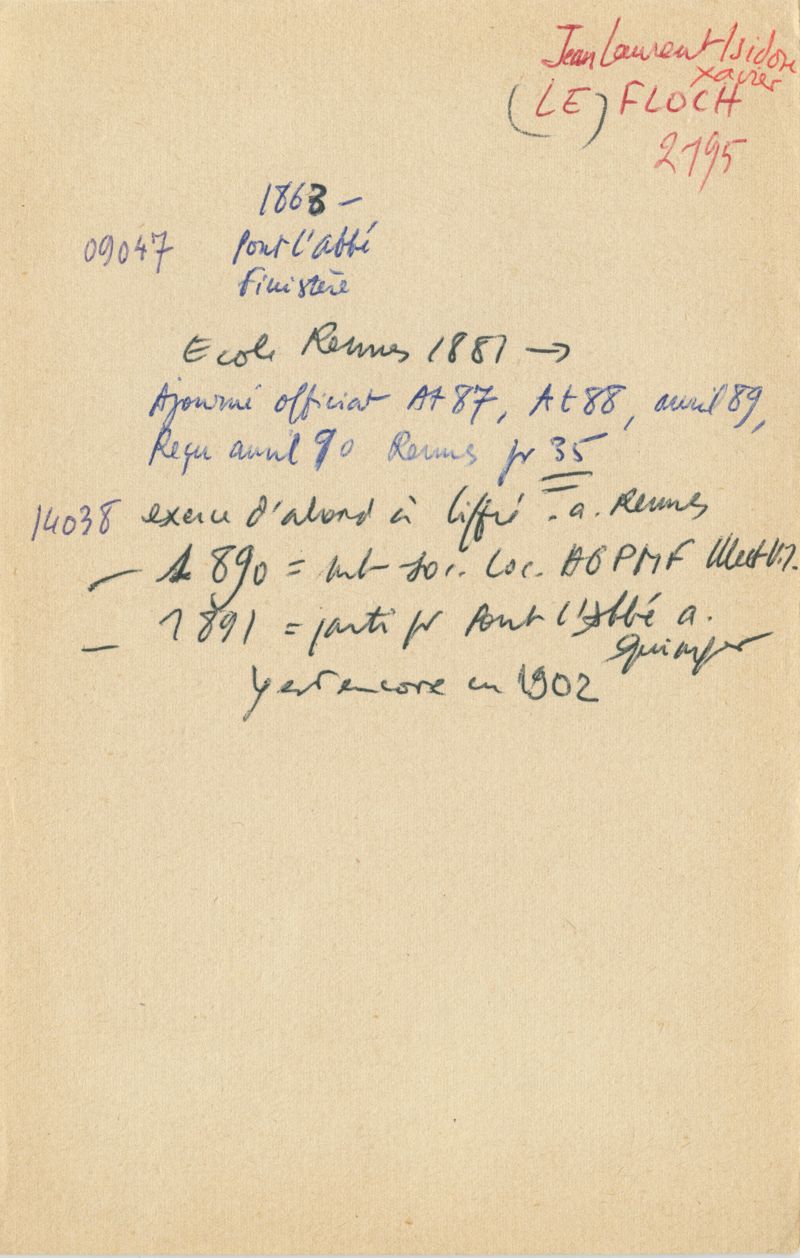 Jean Laurent Isidore
Xavier
(LE) FLOCH
2195
1863 -
09047 Pont l'abbé
Finistère
Ecole Rennes 1881 →
Ajourné officiat At 87, At 88, avril 89,
Reçu avril 90 Rennes pr 35
14038 exerce d'abord à Liffré . a. Rennes
- 1890 = mb soc. Loc. AGPMF Illeet V.
- 1891 = parti pr Pont l'Abbé a.
Quimper
y est encore en 1902